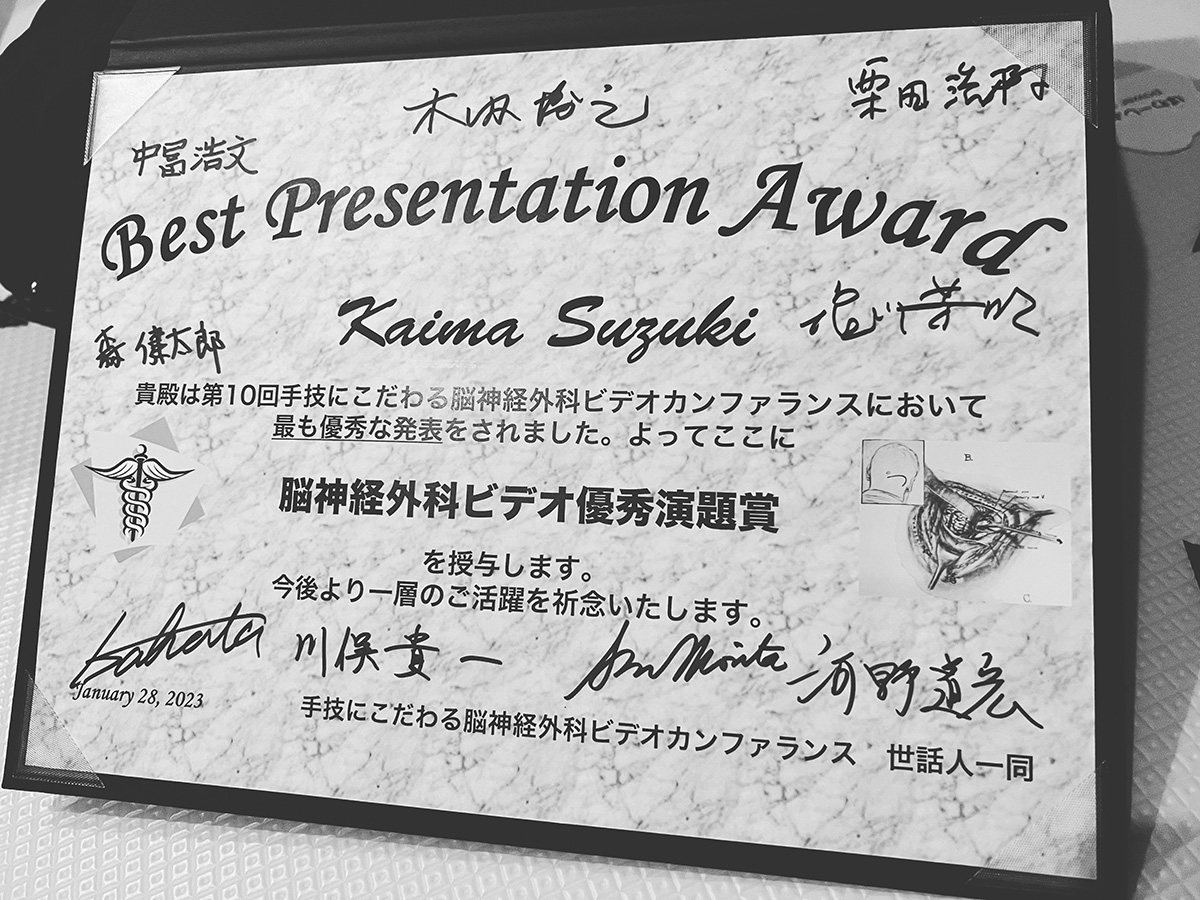 木内博之
栗田浩樹
中冨浩文
Best Presentation Award
Kaima Suzuki
森健太郎
貴殿は第10回手技にこだわる脳神経外科ビデオカンファランスにおいて
最も優秀な発表をされました。よってここに
B.
脳神経外科ビデオ優秀演題賞
を授与します。
今後より一層のご活躍を祈念いたします。
C.
川俣貴一
Morita
河野道宏
January 28, 2023
手技にこだわる脳神経外科ビデオカンファランス 世話人一同